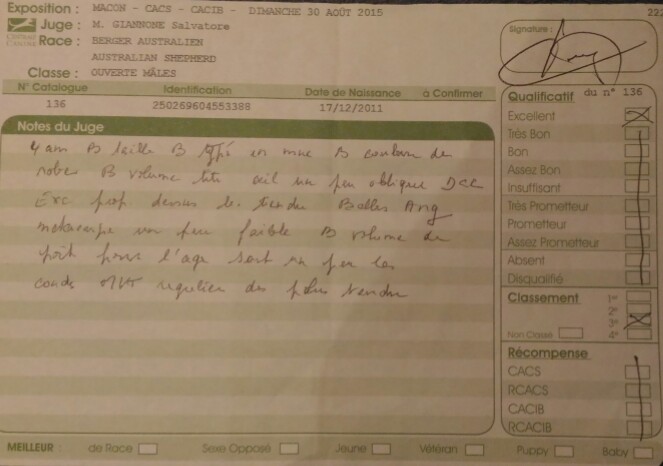 Exposition : MACON - CACS - CACIB - DIMANCHE 30 AOÛT 2015
222
Juge : M. GIANNONE Salvatore
Race : BERGER AUSTRALIEN
AUSTRALIAN SHEPHERD
Classe : OUVERTE MÂLES
CENTRALE CANINE
Signature :
N° Catalogue Identification Date de Naissance à Confirmer
136 250269604553388 17/12/2011
Notes du Juge
4 ans B taille B typé en mue B couleur de
robe B volume tête œil un peu oblique
Exc dessus bien tendu Belles Ang
métacarpe un peu faible B volume de
poit pour l'age sort un peu les
coude régulier
Qualificatif du n° 136
Excellent
Très Bon
Bon
Assez Bon
Insuffisant
Très Prometteur
Prometteur
Assez Prometteur
Absent
Disqualifié
Classement
1°
2°
3°
4°
Non Classé
Récompense
CACS
RCACS
CACIB
RCACIB
MEILLEUR : de Race Sexe Opposé Jeune Vétéran Puppy Baby